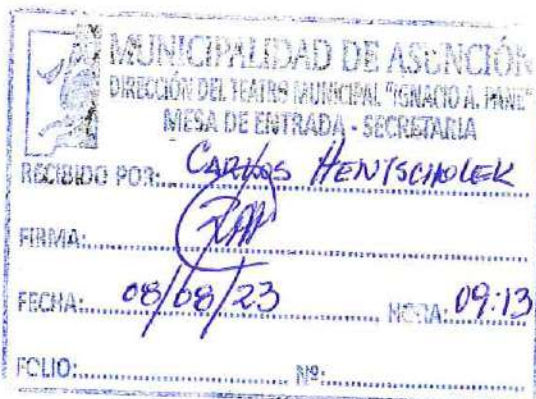 MUNICIPALIDAD DE ASUNCIÓN
DIRECCIÓN DEL TEATRO MUNICIPAL "IGNACIO A. PANE"
MESA DE ENTRADA - SECRETARIA
RECIBIDO POR: CARLOS HENTSCHOLEK
FIRMA:
FECHA: 08/08/23 HORA: 09:13
FOLIO: Nº: